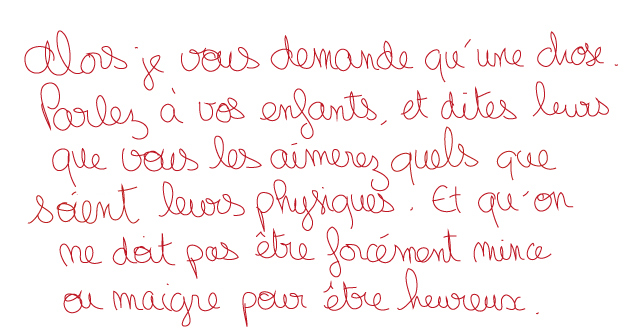 Alors je vous demande qu'une chose.
Parlez à vos enfants, et dites leurs
que vous les aimerez quels que
soient leurs physiques. Et qu'on
ne doit pas être forcément mince
ou maigre pour être heureux.